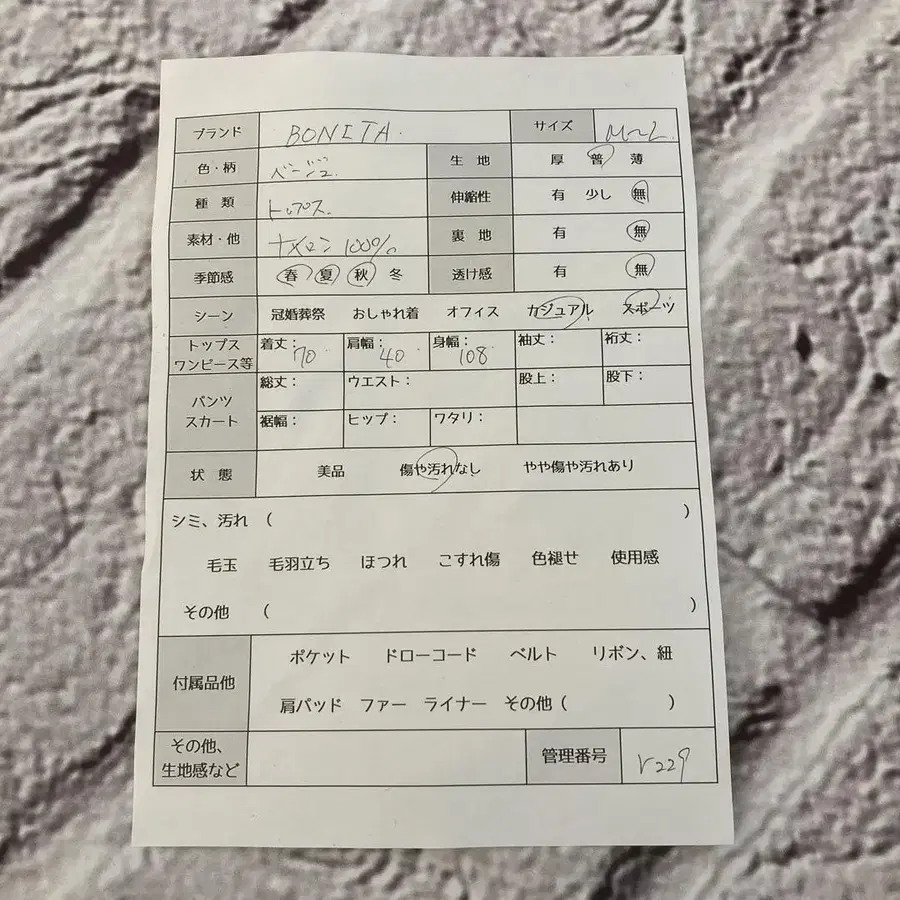 ブランド BONITA サイズ M~L
色・柄 ベージュ 生地 厚 普 薄
種類 トップス 伸縮性 有 少し 無
素材・他 ナイロン 100% 裏地 有 無
季節感 春 夏 秋 冬 透け感 有 無
シーン 冠婚葬祭 おしゃれ着 オフィス カジュアル スポーツ
トップス ワンピース等 着丈：70 肩幅：40 身幅：108 袖丈： 裄丈：
パンツ スカート 総丈： ウエスト： 股上： 股下：
裾幅： ヒップ： ワタリ：
状態 美品 傷や汚れなし やや傷や汚れあり
シミ、汚れ （ ）
毛玉 毛羽立ち ほつれ こすれ傷 色褪せ 使用感
その他 （ ）
付属品他 ポケット ドローコード ベルト リボン、紐
肩パッド ファー ライナー その他（ ）
その他、生地感など 管理番号 r229